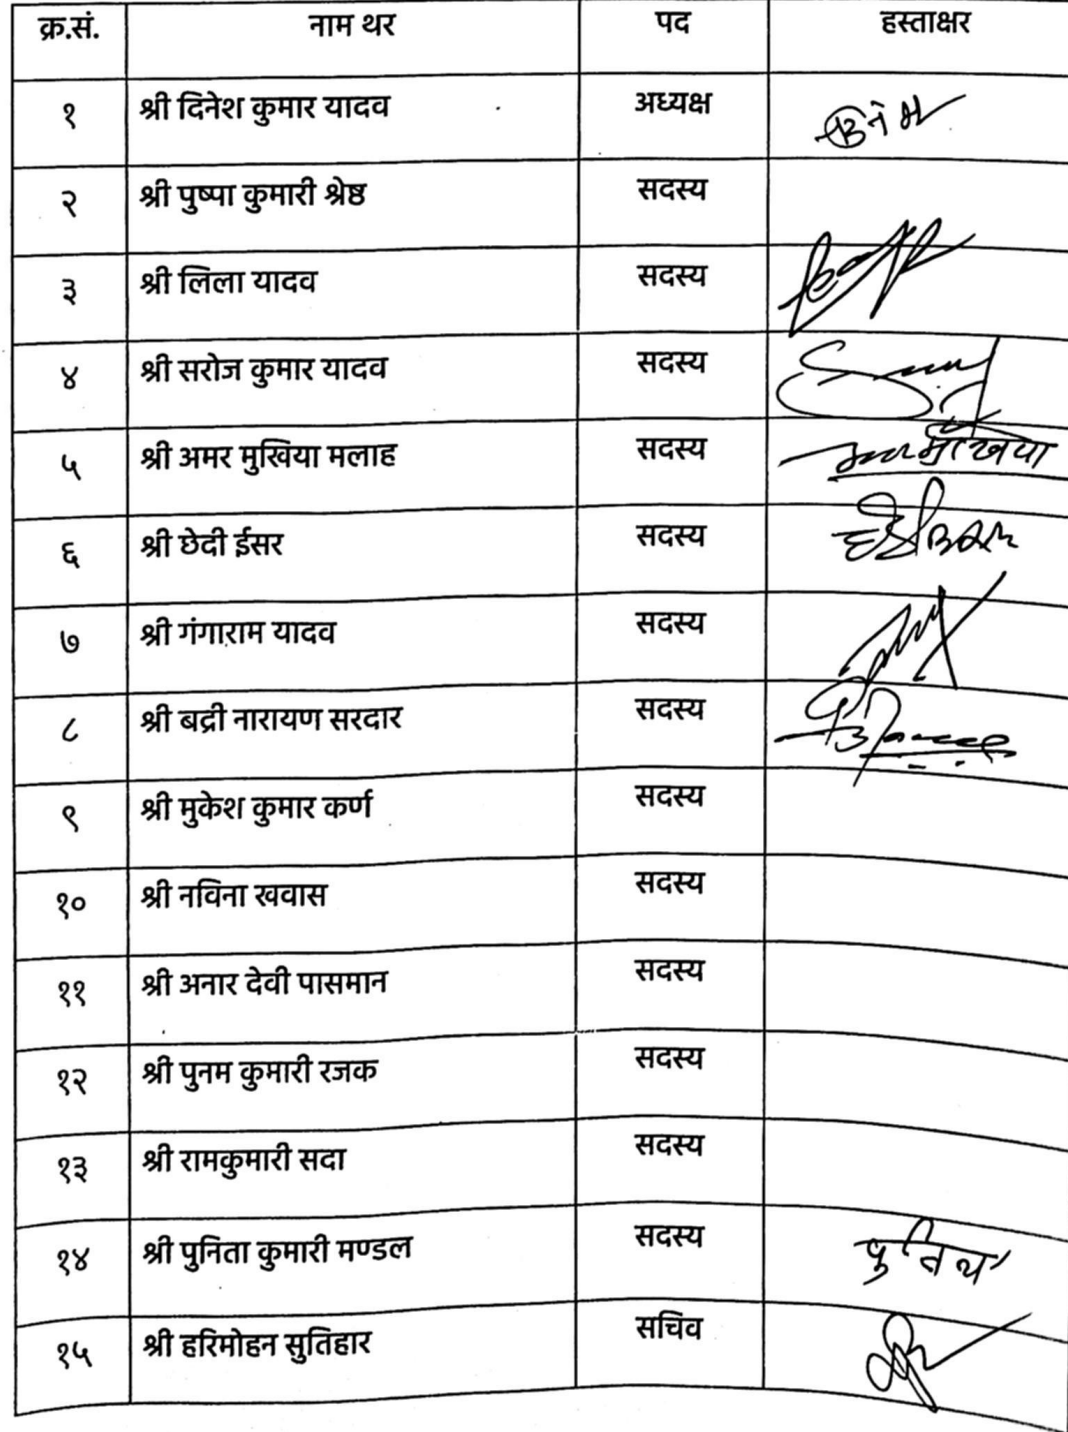 क्र.सं. नाम थर पद हस्ताक्षर
१ श्री दिनेश कुमार यादव अध्यक्ष दिनेश
२ श्री पुष्पा कुमारी श्रेष्ठ सदस्य
३ श्री लिला यादव सदस्य
४ श्री सरोज कुमार यादव सदस्य
५ श्री अमर मुखिया मलाह सदस्य मुखिया
६ श्री छेदी ईसर सदस्य
७ श्री गंगाराम यादव सदस्य
८ श्री बद्री नारायण सरदार सदस्य
९ श्री मुकेश कुमार कर्ण सदस्य
१० श्री नविना खवास सदस्य
११ श्री अनार देवी पासमान सदस्य
१२ श्री पुनम कुमारी रजक सदस्य
१३ श्री रामकुमारी सदा सदस्य
१४ श्री पुनिता कुमारी मण्डल सदस्य
१५ श्री हरिमोहन सुतिहार सचिव